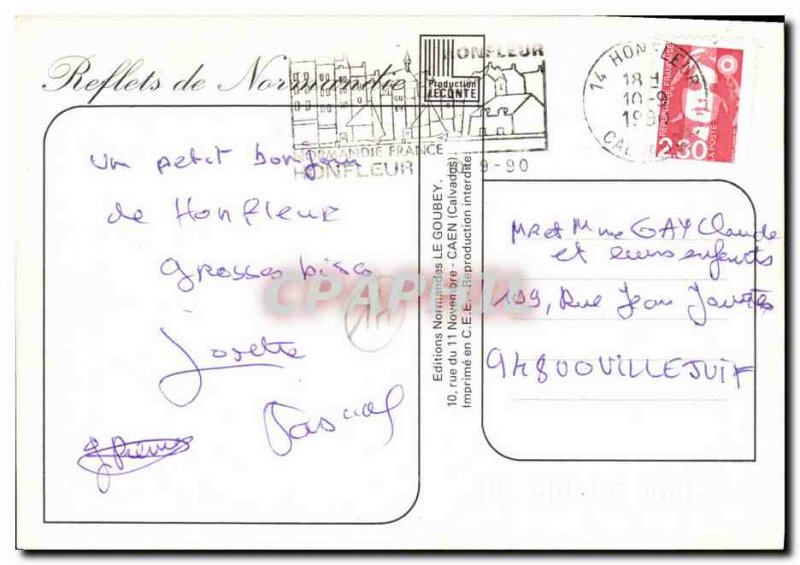 Reflets de Normandie
Production
LECONTE
HONFLEUR
NORMANDIE FRANCE
HONFLEUR
9-90
14 HONFLEUR
18 H
10-9
199
CAL
REPUBLIQUE FRANÇAISE
LA POSTE
2,30
un petit bonjour
de Honfleur
grosses bises
Josette
Pascal
J Pierre
Editions Normandes LE GOUBEY.
10, rue du 11 Novembre - CAEN (Calvados)
Imprimé en C.E.E. - Reproduction interdite
CPAPHIL
MR et Mme GAY Claude
et leurs enfants
109, Rue Jean Jaurès
94800 VILLEJUIF